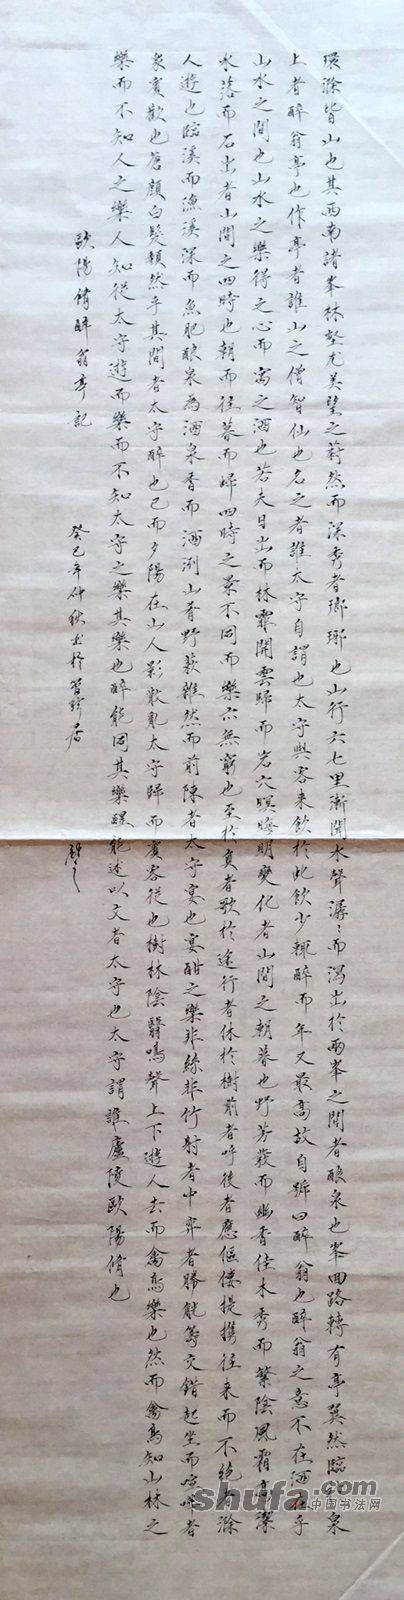 環滁皆山也其西南諸峯林壑尤美望之蔚然而深秀者瑯琊也山行六七里漸聞水聲潺〻而瀉出於兩峯之間者釀泉也峯回路轉有亭翼然臨於泉
上者醉翁亭也作亭者誰山之僧智仙也名之者誰太守自謂也太守與客来飲於此飲少輒醉而年又最高故自號曰醉翁也醉翁之意不在酒在乎
山水之間也山水之樂得之心而寓之酒也若夫日出而林霏開雲歸而岩穴暝晦明變化者山間之朝暮也野芳發而幽香佳木秀而繁陰風霜高潔
水落而石出者山間之四時也朝而往暮而歸四時之景不同而樂亦無窮也至於負者歌於途行者休於樹前者呼後者應傴僂提携往来而不絕者滁
人遊也臨溪而漁溪深而魚肥釀泉為酒泉香而酒洌山肴野蔌雜然而前陳者太守宴也宴酣之樂非絲非竹射者中弈者勝觥籌交錯起坐而喧嘩者
衆賓歡也蒼顏白髮頹然乎其間者太守醉也已而夕陽在山人影散亂太守歸而賓客從也樹林陰翳鳴聲上下遊人去而禽鳥樂也然而禽鳥知山林之
樂而不知人之樂人知從太守遊而樂而不知太守之樂其樂也醉能同其樂醒能述以文者太守也太守謂誰廬陵歐陽脩也
歐陽脩醉翁亭記
癸巳年仲秋書於
shufa.com
中国书法网